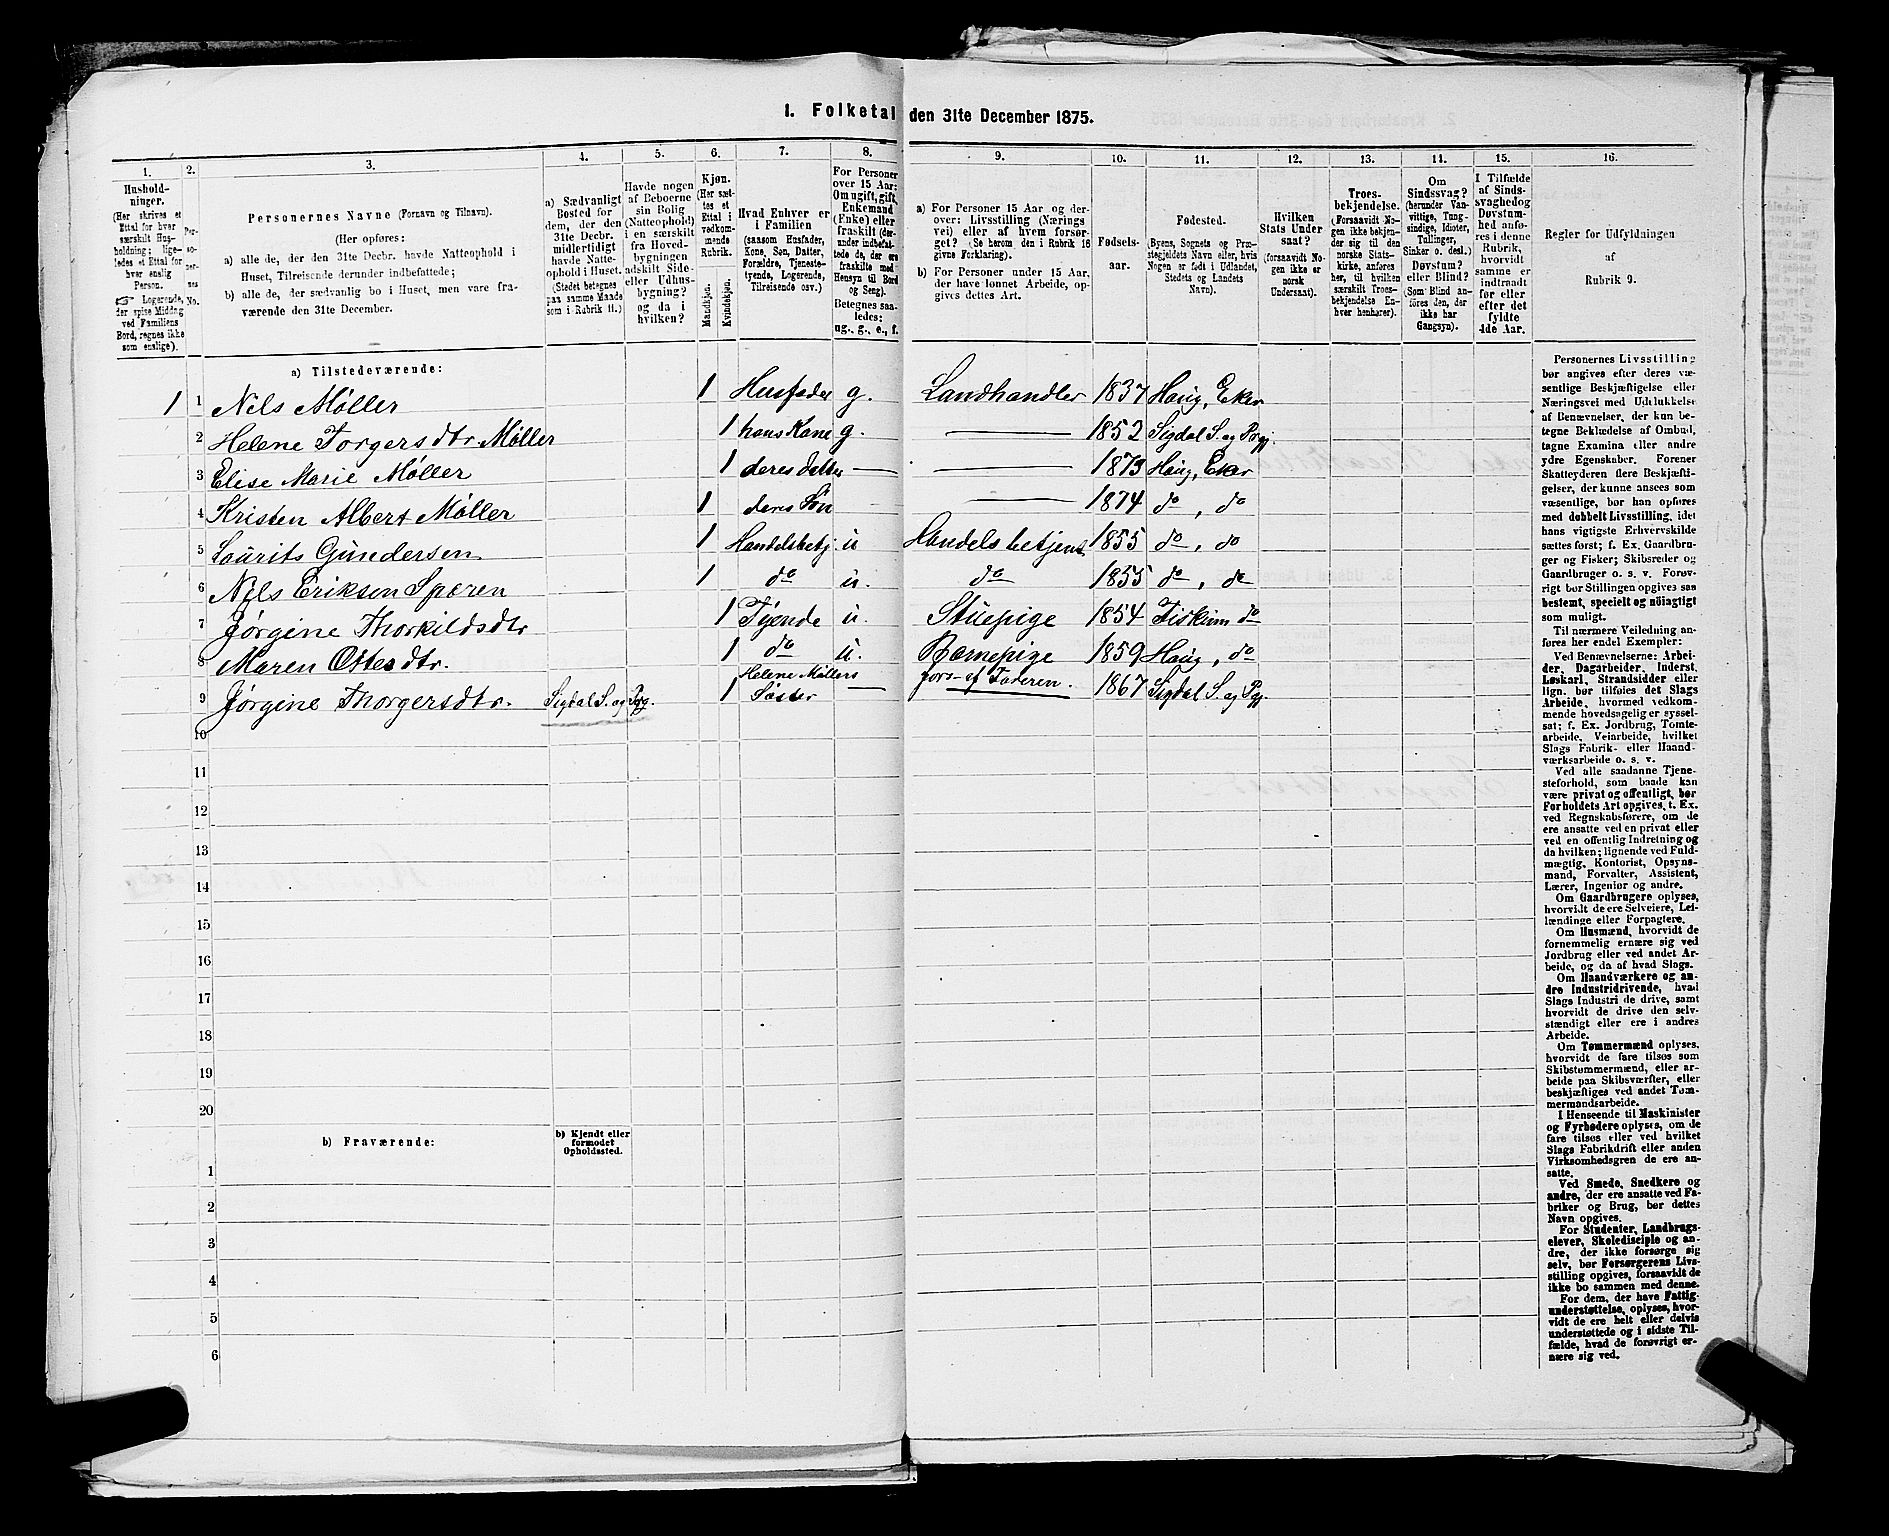 1. Folketal den 31te December 1875.
1. 2. 3. 4. 5. 6. 7. 8. 9. 10. 11. 12. 13. 14. 15. 16.
Hushold-
ninger.
(Her skrives et
Ettal for hver
særskilt Hus-
holdning; lige-
ledes et Ettal for
hver enslig
Person.
☞ Logerende,
der spise Middag
ved Familiens
Bord, regnes ikke
som enslige).
Per-
so-
ner-
nes
No.
Personernes Navne (Fornavn og Tilnavn).
(Her opføres:
a) alle de, der den 31te Decbr. havde Natteophold i
Huset, Tilreisende derunder indbefattede;
b) alle de, der sædvanlig bo i Huset, men vare fra-
værende den 31te December.
a) Sædvanligt
Bosted for
dem, der den
31te Decbr.
midlertidigt
havde Natte-
ophold i Huset.
(Stedet betegnes
paa samme Maade
som i Rubrik 11.)
Havde nogen
af Beboerne
sin Bolig
(Natteophold)
i en særskilt
fra Hoved-
bygningen
adskilt Side-
eller Udhus-
bygning?
og da i
hvilken?
Kjøn.
(Her sæt-
tes et
Ettal i
vedkom-
mende
Rubrik.
Mandkjøn.
Kvindekjøn.
Hvad Enhver er
i Familien
(saasom Husfader,
Kone, Søn, Datter,
Forældre, Tjeneste-
tyende, Logerende,
Tilreisende osv.)
For Personer
over 15 Aar:
Om ugift, gift,
Enkemand
(Enke) eller
fraskilt (der-
under indbefat-
tede de, der ere
fraskilte med
Hensyn til Bord
og Seng).
Betegnes saa-
ledes:
ug., g., e., f.
a) For Personer 15 Aar og der-
over: Livsstilling (Nærings
vei) eller af hvem forsør-
get? (Se herom den i Rubrik 16
givne Forklaring).
b) For Personer under 15 Aar,
der have lønnet Arbeide, op-
gives dettes Art.
Fødsels-
aar.
Fødested.
(Byens, Sognets og Præ-
stegjeldets Navn eller, hvis
Nogen er født i Udlandet,
Stedets og Landets
Navn).
Hvilken
Stats Under
saat?
(forsaavidt No-
gen ikke er
norsk
Undersaat).
Troes-
bekjendelse.
(Forsaavidt No-
gen ikke bekjen-
der sig til den
norske Stats-
kirke, anføres
her, til hvilken
særskilt Troes-
bekjendelse En-
hver henhører).
Om
Sindssvag?
(herunder Van-
vittige, Tung-
sindige, Idioter,
Tullinger,
Sinker o. desl.)
Døvstum?
eller Blind?
(Som Blind an-
føres den, der
ikke har
Gangsyn).
I Tilfælde
af Sinds-
svaghed og
Døvstum-
hed anfø-
res i denne
Rubrik,
hvorvidt
samme er
indtraadt
før eller
efter det
fyldte
4de Aar.
Regler for Udfyldningen
af
Rubrik 9.
a) Tilstedeværende:
1 1 Nils Møller 1 Husfader g. Landhandler 1837 Haug, Eker
2 Helene Torgersdtr. Møller 1 hans Kone g. — 1852 Sigdal S. og Prgj.
3 Elise Marie Møller 1 deres Datter — — 1873 Haug, Eker
4 Kristen Albert Møller 1 deres Søn — 1874 do, do
5 Laurits Gundersen 1 Handelsbetj. u Handelsbetjent 1855 do, do
6 Nils Eriksen Speren 1 do u. do 1855 do, do
7 Jørgine Thorkildsdtr 1 Tjende u. Stuepige 1854 Fiskum do
8 Maren Ottesdtr. 1 do u. Barnepige 1859 Haug, do
9 Jørgine Thorgersdtr. Sigdal S. og Prg. 1 Helene Møllers Søster — fors. af Faderen. 1867 Sigdal S. og Pgj
10
11
12
13
14
15
16
17
18
19
20
b) Fraværende:
b) Kjendt eller
formodet
Opholdssted.
1
2
3
4
5
6
Personernes Livsstilling
bør angives efter deres væ-
sentlige Beskjæftigelse eller
Næringsvei med Udelukkelse
af Benævnelser, der kun be-
tegne Beklædelse af Ombud,
tagne Examina eller andre
ydre Egenskaber. Forener
Skatteyderen flere Beskjæfti-
gelser, der kunne ansees som
væsentlige, bør han opføres
med dobbelt Livsstilling, idet
hans vigtigste Erhvervskilde
sættes først; f. Ex. Gaardbru-
ger og Fisker; Skibsreder og
Gaardbruger o. s. v. Forøv-
rigt bør Stillingen opgives saa
bestemt, specielt og nöiagtigt
som muligt.
Til nærmere Veiledning an-
føres her endel Exempler:
Ved Benævnelserne: Arbei-
der, Dagarbeider, Inderst,
Løskarl, Strandsidder eller
lign. bør tilføies det Slags
Arbeide, hvormed vedkom-
mende hovedsagelig er syssel-
sat; f. Ex. Jordbrug, Tomte-
arbeide, Veiarbeide, hvilket
Slags Fabrik- eller Haand-
værksarbeide o. s. v.
Ved alle saadanne Tjene-
steforhold, som baade kan
være privat og offentligt, bør
Forholdets Art opgives, t. Ex.
ved Regnskabsførere, om de
ere ansatte ved en privat eller
ved en offentlig Indretning og
da hvilken; lignende ved Fuld-
mægtig, Kontorist, Opsyns-
mand, Forvalter, Assistent,
Lærer, Ingeniør og andre.
Om Gaardbrugere oplyses,
hvorvidt de ere Selveiere, Lei-
lændinge eller Forpagtere.
Om Husmænd, hvorvidt de
fornemmelig ernære sig ved
Jordbrug eller ved andet Ar-
beide, og da af hvad Slags.
Om Haandværkere og an-
dre Industridrivende, hvad
Slags Industri de drive, samt
hvorvidt de drive den selv-
stændigt eller ere i andres
Arbeide.
Om Tømmermænd oplyses,
hvorvidt de fare tilsøs som
Skibstømmermænd, eller ar-
beide paa Skibsværfter, eller
beskjæftiges ved andet Tøm-
mermandsarbeide.
I Henseende til Maskinister
og Fyrbødere oplyses, om de
fare tilsøs eller ved hvilket
Slags Fabrikdrift eller anden
Virksomhedsgren de ere an-
satte.
Ved Smede, Snedkere og
andre, der ere ansatte ved Fa-
briker og Brug, bør dettes
Navn opgives.
For Studenter, Landbrugs-
elever, Skoledisciple og an-
dre, der ikke forsørge sig
selv, bør Forsørgerens Livs-
stilling opgives, forsaavidt de
ikke bo sammen med denne.
For dem, der have Fattig-
understøttelse, oplyses, hvor-
vidt de ere helt eller delvis
understøttede og i sidste Til-
fælde, hvad de forøvrigt er-
nære sig ved.